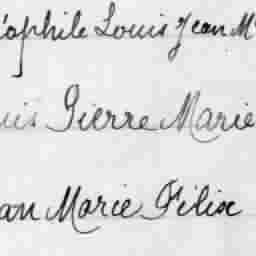 éophile Louis Jean M
uis Pierre Marie
an Marie Félix